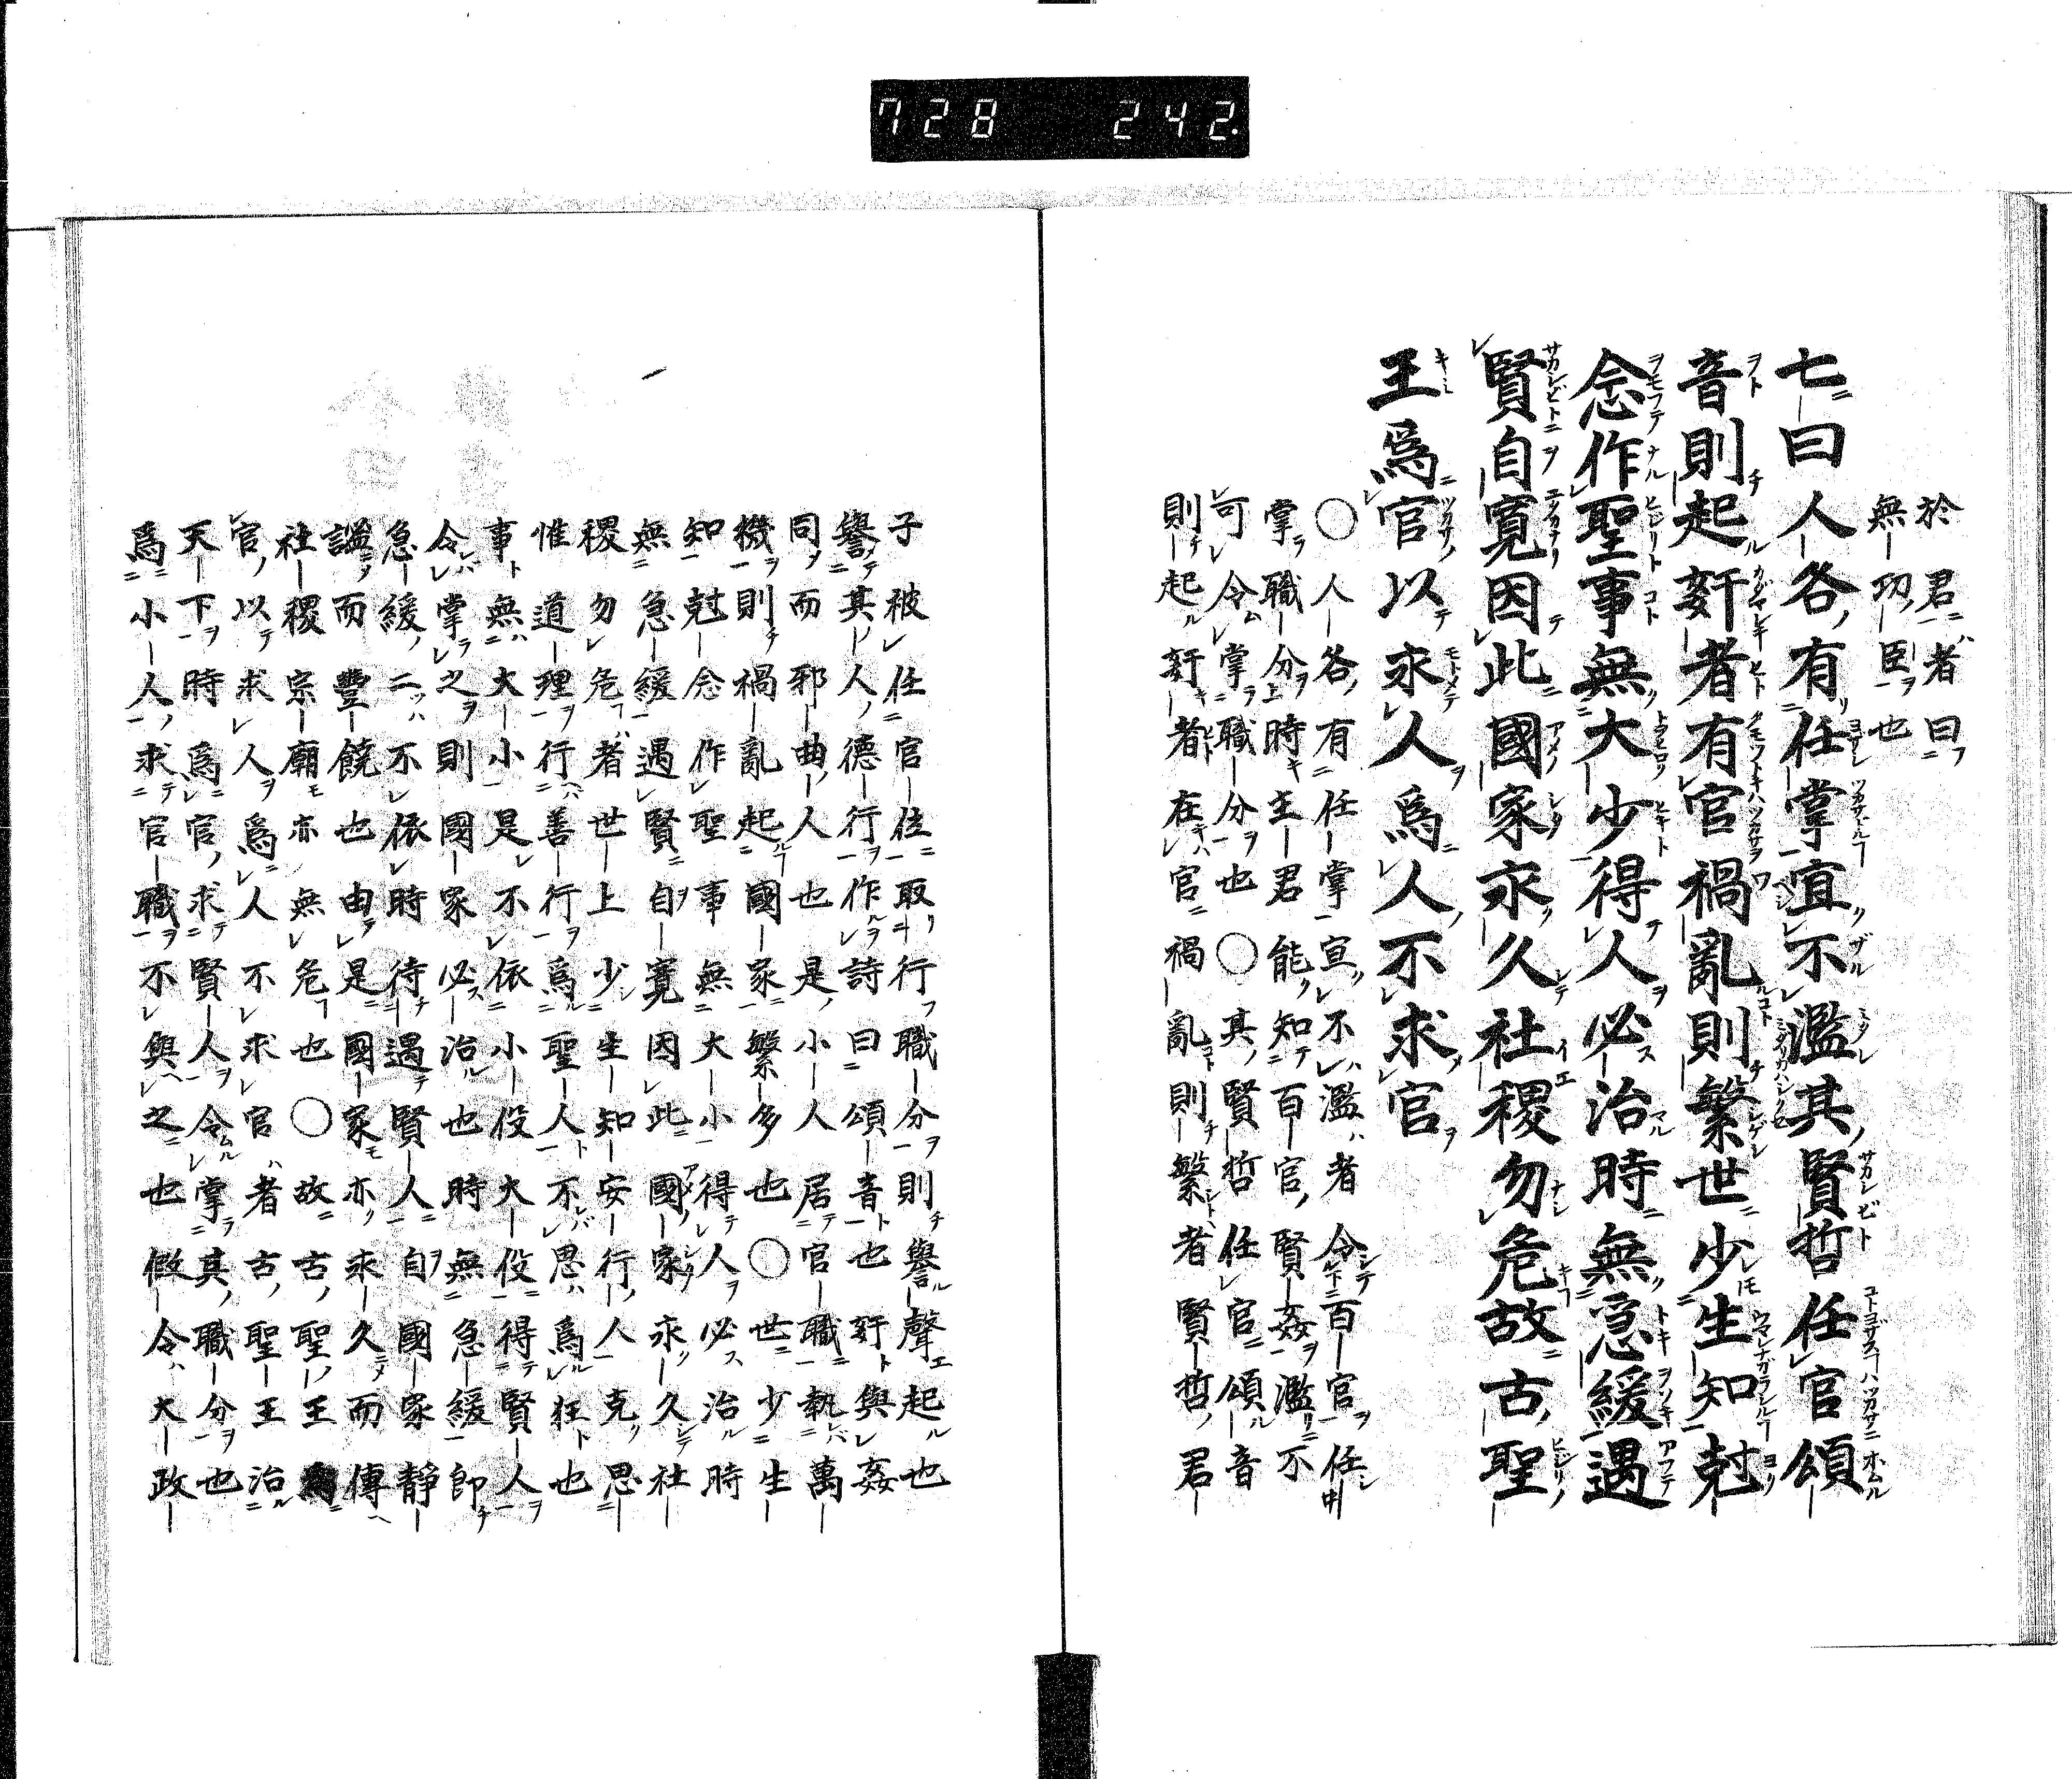 728 242.
於君者曰
無功臣也
七曰人各有任掌宜不濫其賢哲任官頌
音則起奸者有官禍亂則繁世少生知尅
念作聖事無大少得人必治時無急緩遇
賢自寛因此國家永久社稷勿危故古聖
王爲官以求人爲人不求官
○人各有任掌宜不濫者令百官任
掌職分時主君能知百官賢姦濫不
可令掌職分也○其賢哲任官頌音
則起奸者在官禍亂則繁者賢哲君
子被任官位取行職分則譽聲起也
譽其人德行作詩曰頌音也奸與姦
同而邪曲人也是小人居官職執萬
機則禍亂起國家繁多也○世少生
知尅念作聖事無大小得人必治時
無急緩遇賢自寛因此國家永久社
稷勿危者世上少生知安行人克思
惟道理行善行爲聖人不思爲狂也
事無大小是不依小役大役得賢人
令掌之則國家必治也時無急緩即
急緩二不依時待遇賢人自國家靜
謐而豐饒也由是國家亦永久而傳
社稷宗廟亦無危也○故古聖王爲
官以求人爲人不求官者古聖王治
天下時爲官求賢人令掌其職分也
爲小人求官職不與之也假令大政